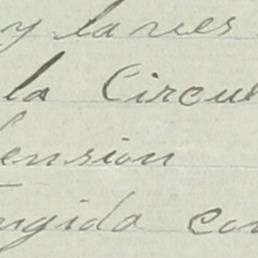 y laves
la Circul
ension
ngida con